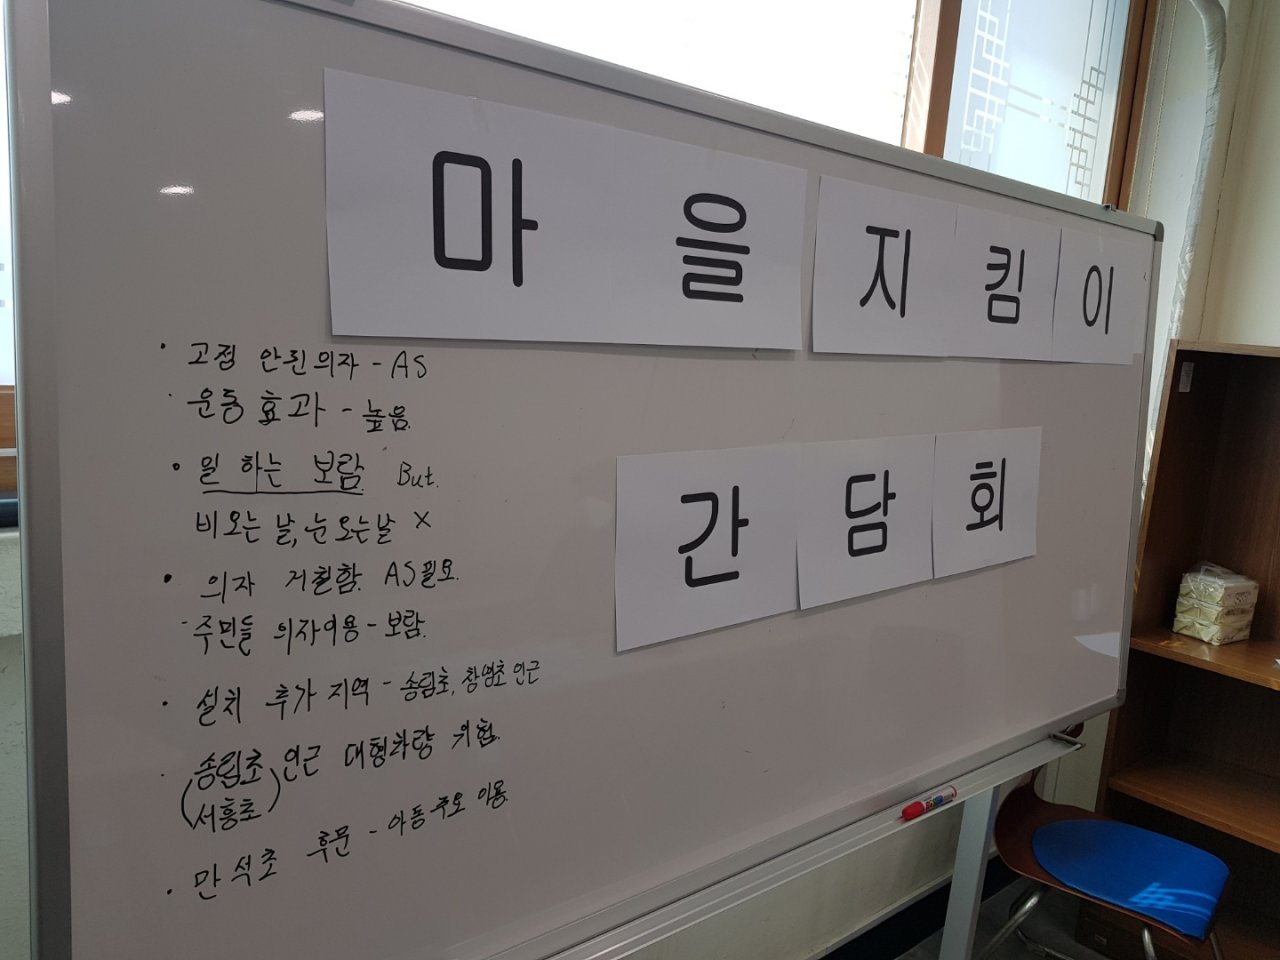 마을 지킴이
간담회
• 고정 안된 의자 - AS
• 운동 효과 - 높음.
• 일 하는 보람. But.
비오는 날, 눈 오는날 X
• 의자 거칠함. AS필요.
- 주민들 의자이용 - 보람.
• 설치 추가 지역 - 송림초, 창영초 인근
• 송림초 인근 대형차량 위험.
(서흥초)
• 만석초 후문 - 아동 주로 이용.